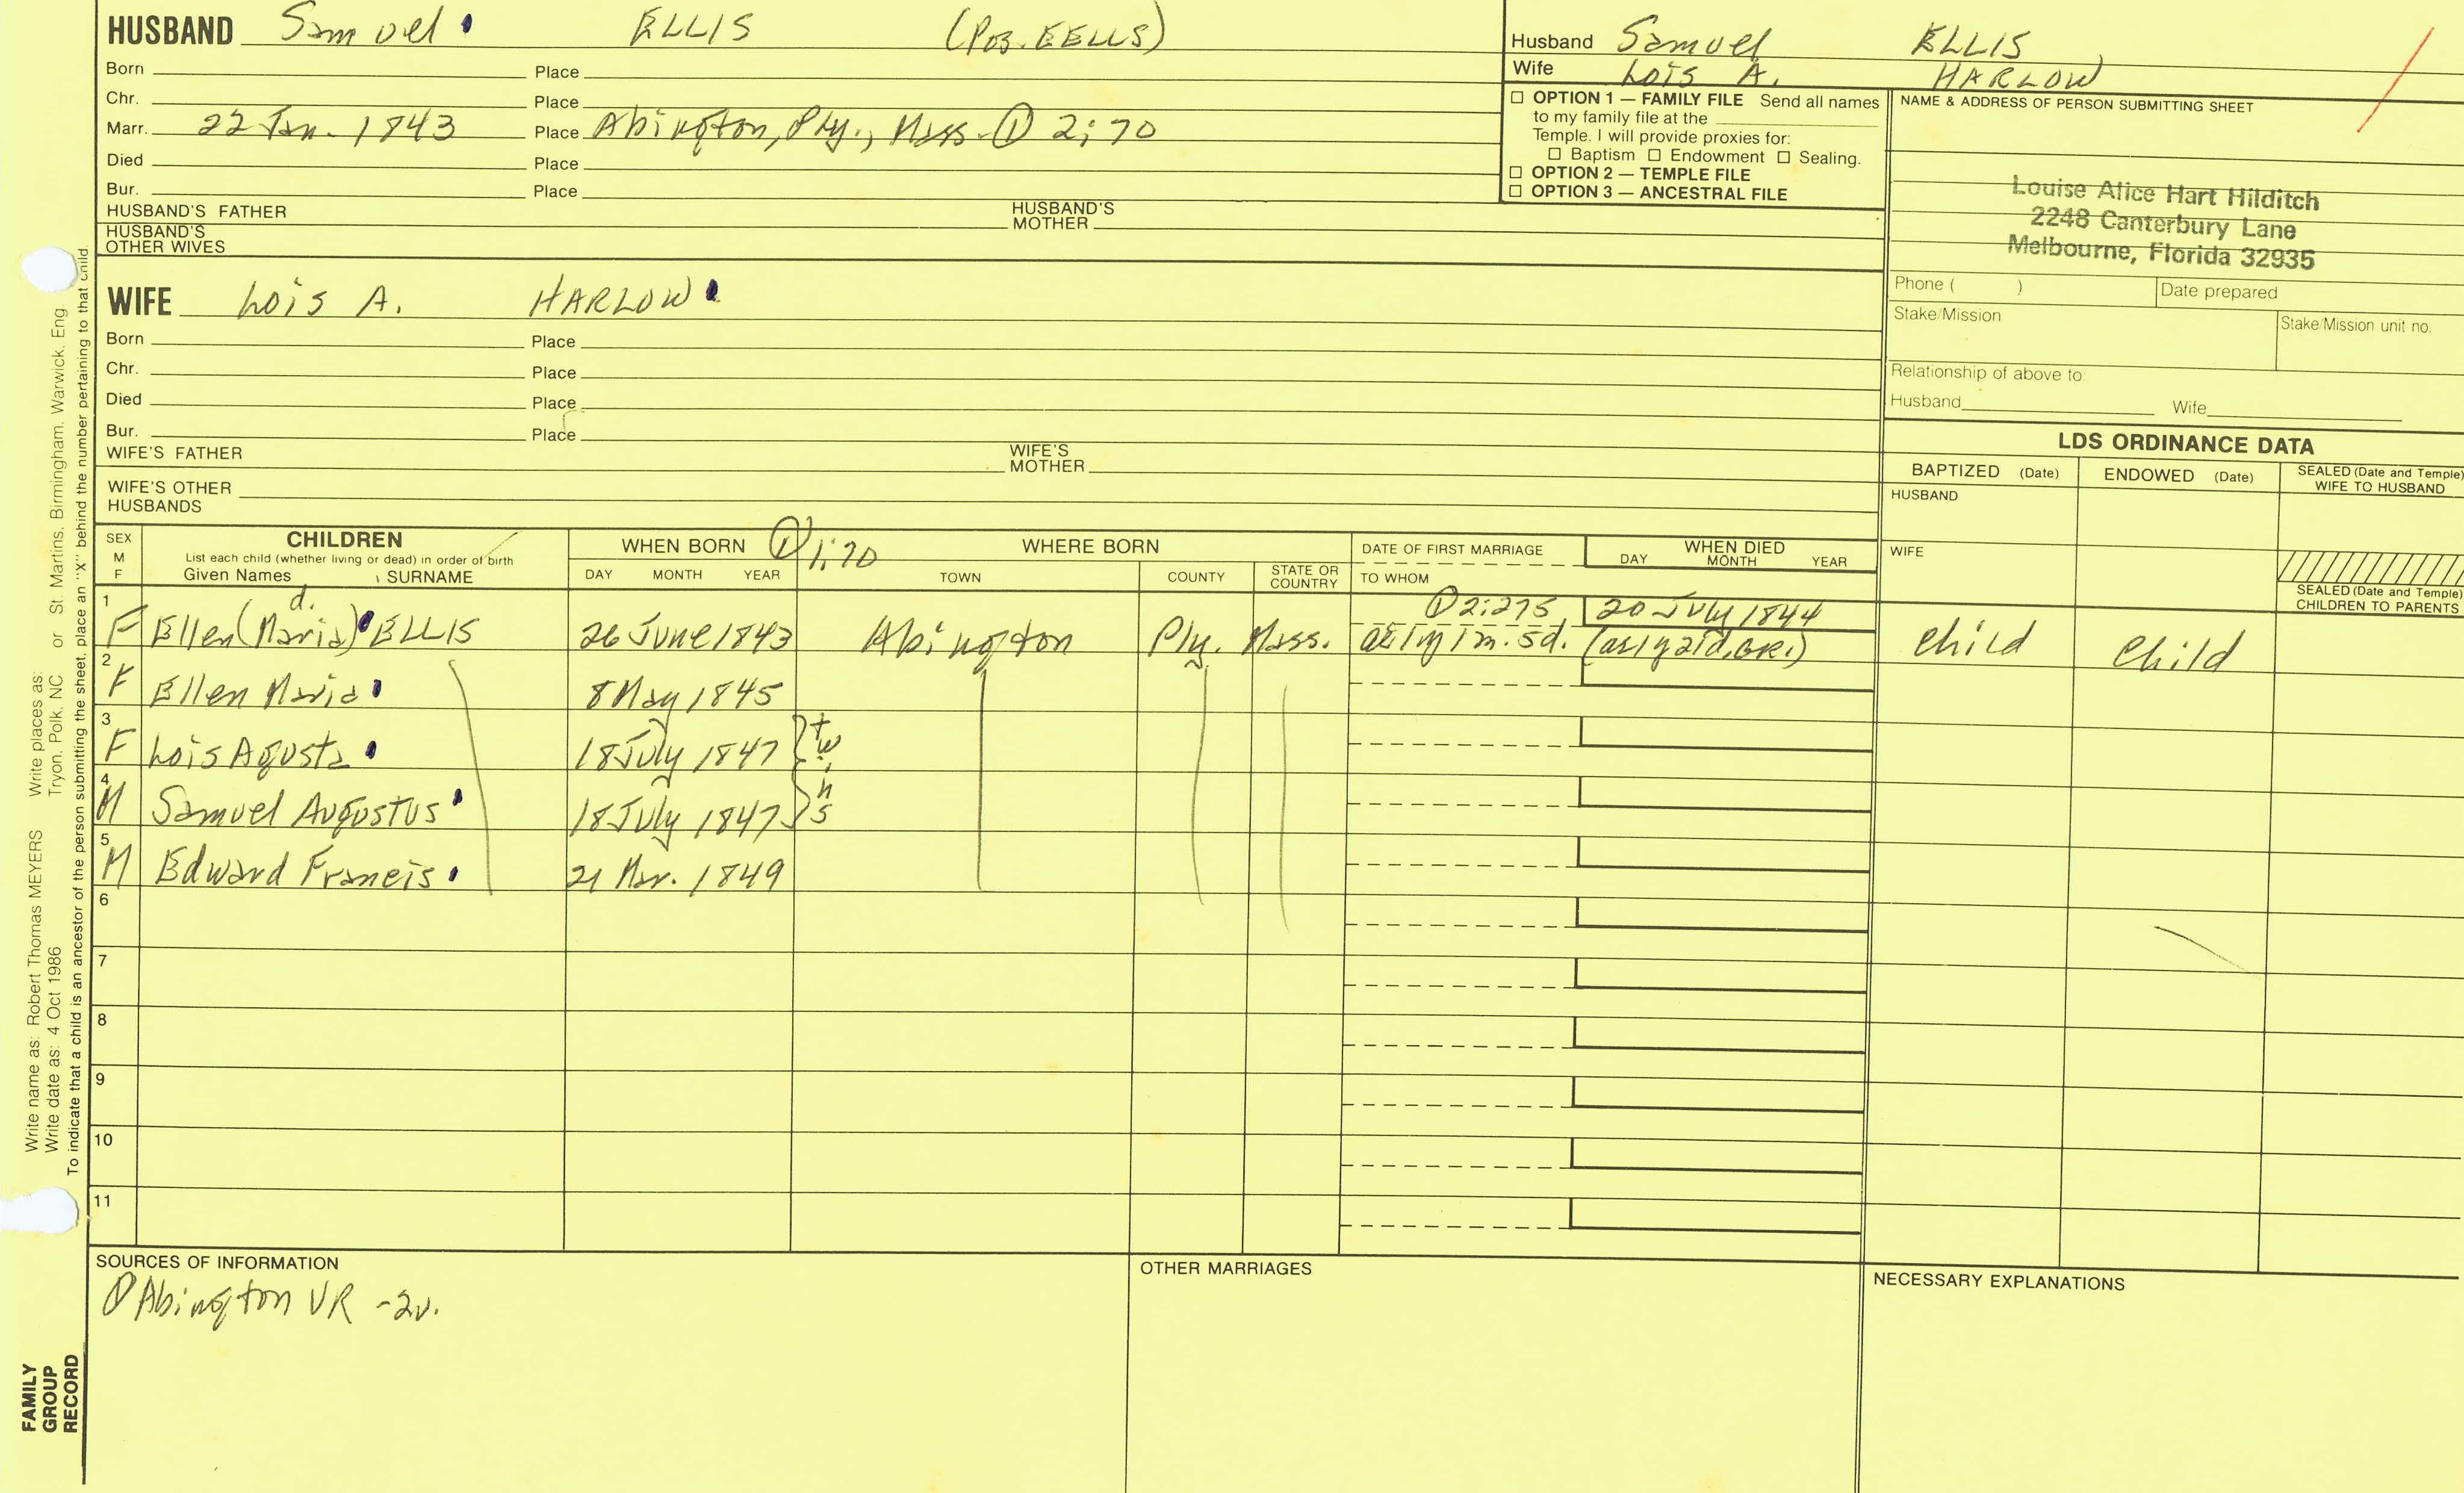 HUSBAND Samuel ELLIS (Pos. EELLS)
Born Place
Chr. Place
Marr. 22 Jan. 1843 Place Abington, Ply., Mass. ① 2:70
Died Place
Bur. Place
HUSBAND'S FATHER HUSBAND'S MOTHER
HUSBAND'S OTHER WIVES
Husband Samuel ELLIS
Wife Lois A. HARLOW
☐ OPTION 1 — FAMILY FILE Send all names
to my family file at the
Temple. I will provide proxies for:
☐ Baptism ☐ Endowment ☐ Sealing.
☐ OPTION 2 — TEMPLE FILE
☐ OPTION 3 — ANCESTRAL FILE
NAME & ADDRESS OF PERSON SUBMITTING SHEET
Louise Alice Hart Hilditch
2248 Canterbury Lane
Melbourne, Florida 32935
Phone ( ) Date prepared
Stake/Mission Stake/Mission unit no.
Relationship of above to:
Husband Wife
WIFE Lois A. HARLOW
Born Place
Chr. Place
Died Place
Bur. Place
WIFE'S FATHER WIFE'S MOTHER
WIFE'S OTHER HUSBANDS
LDS ORDINANCE DATA
BAPTIZED (Date) ENDOWED (Date) SEALED (Date and Temple) WIFE TO HUSBAND
HUSBAND
WIFE
SEALED (Date and Temple) CHILDREN TO PARENTS
SEX M F
CHILDREN
List each child (whether living or dead) in order of birth
Given Names SURNAME
WHEN BORN ① 1:70 WHERE BORN
DAY MONTH YEAR TOWN COUNTY STATE OR COUNTRY
DATE OF FIRST MARRIAGE
TO WHOM
WHEN DIED
DAY MONTH YEAR
d. ① 2:275 20 July 1844
1 F Ellen (Maria) ELLIS 26 June 1843 Abington Ply. Mass. ae 1y 1m. 5d. (as 1y 21d, GR1) Child Child
2 F Ellen Maria 8 May 1845
3 F Lois Agusta 18 July 1847 twins
4 M Samuel Augustus 18 July 1847
5 M Edward Francis 21 Mar. 1849
6
7
8
9
10
11
SOURCES OF INFORMATION
① Abington VR -2v.
OTHER MARRIAGES
NECESSARY EXPLANATIONS
Write name as: Robert Thomas MEYERS Write places as:
Write date as: 4 Oct 1986 Tryon, Polk, NC or St. Martins, Birmingham, Warwick, Eng
To indicate that a child is an ancestor of the person submitting the sheet, place an "X" behind the number pertaining to that child.
FAMILY
GROUP
RECORD